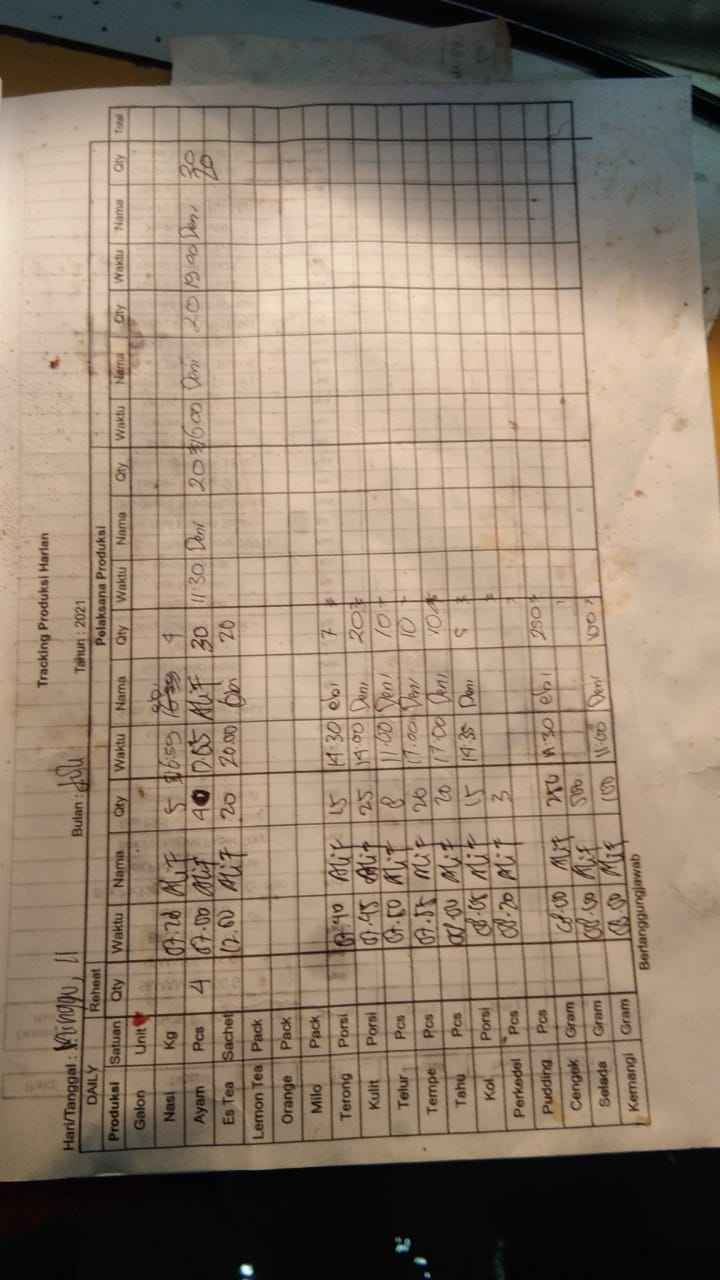 Tracking Produksi Harian
Hari/Tanggal : Minggu, 11 Bulan : Juli Tahun : 2021
DAILY Reheat Pelaksana Produksi
Produksi Satuan Qty Waktu Nama Qty Waktu Nama Qty Waktu Nama Qty Waktu Nama Qty Waktu Nama Qty Total
Galon Unit
Nasi Kg 07.20 Alif 5 4
Ayam Pcs 4 07.00 Alif 40 Alif 30 11:30 Deni 20 16:00 Deni 20 19:00 Deni 30 20
Es Tea Sachet 12.00 Alif 20 20.00 20
Lemon Tea Pack
Orange Pack
Milo Pack
Terong Porsi 07.40 Alif 15 14:30 ebi 7
Kulit Porsi 07.45 Alif 25 14:00 Deni 20
Telur Pcs 07.50 Alif 8 11:00 Deni 10
Tempe Pcs 07.55 Alif 20 17:00 Deni 10
Tahu Pcs 08.00 Alif 20 17:00 Deni 10
Kol Porsi 08.05 Alif 15 14:35 Deni 5
Perkedel Pcs 08.20 Alif 3
Pudding Pcs
Cengek Gram 08.00 Alif 250 ebi 250
Selada Gram 08.00 Alif 500
Kemangi Gram 08.00 Alif 100 11:00 Deni 100
Bertanggungjawab